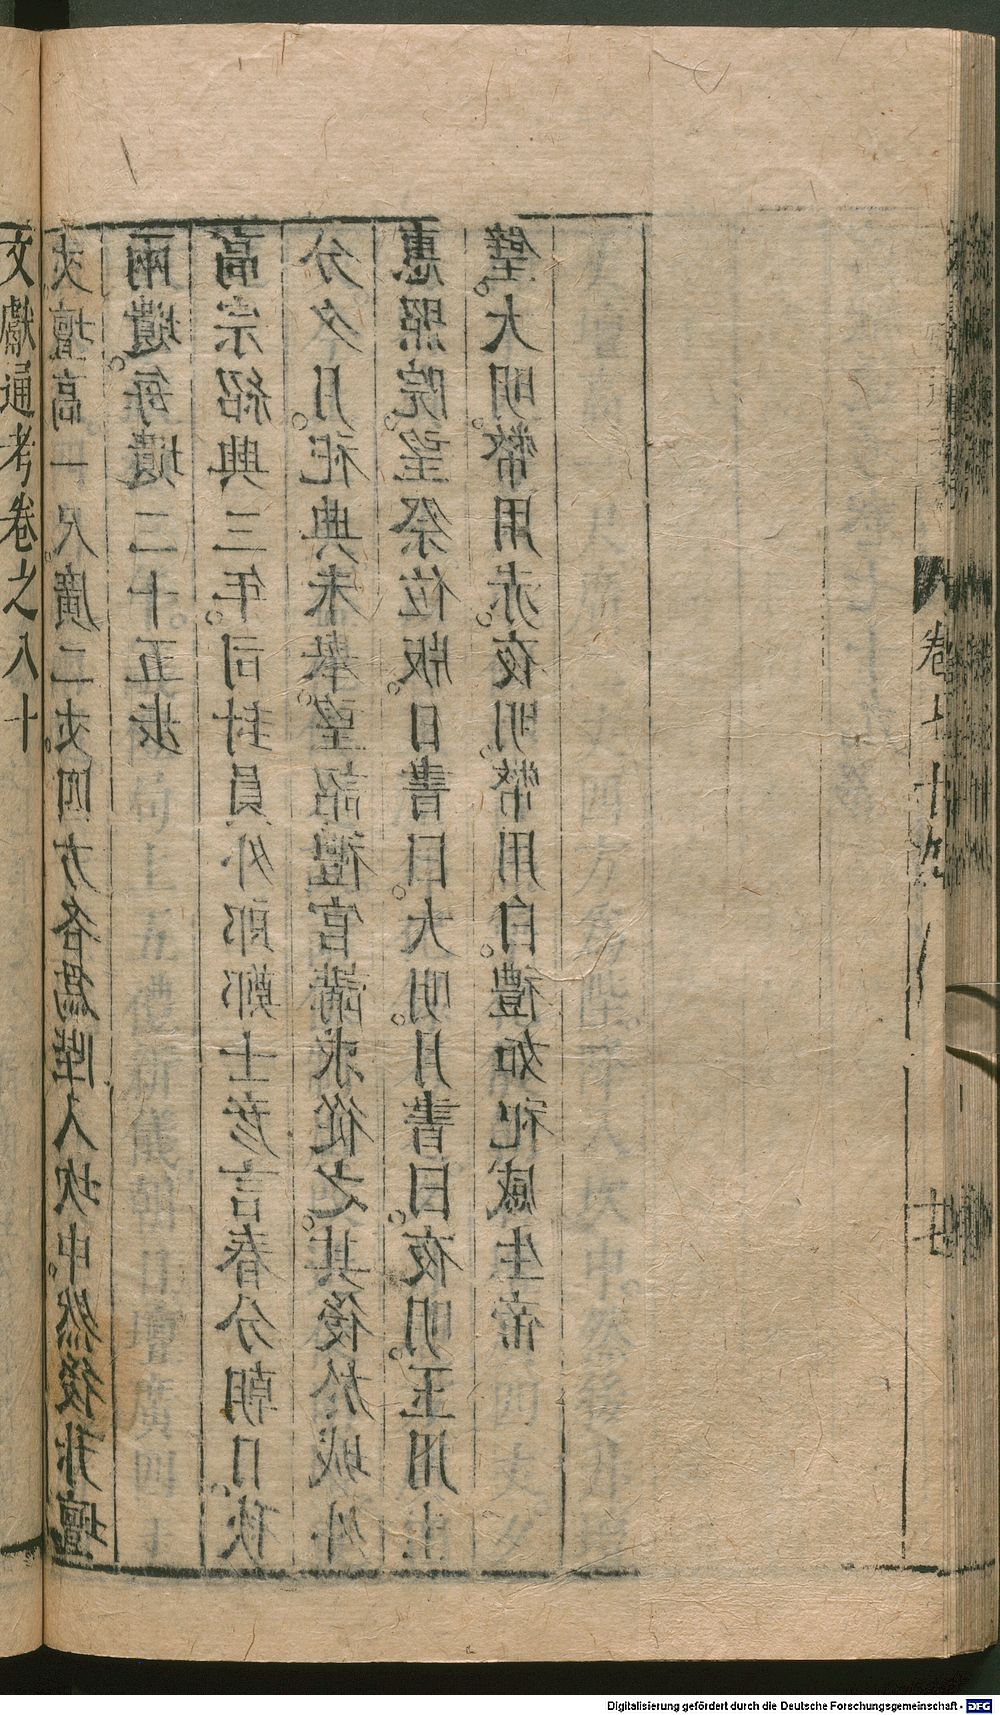 文獻通考卷之八十
丈壇高一尺廣二丈四方各爲陛入坎中然後升壇
兩壝每壝二十五步
高宗紹興三年司封員外郎鄭士彥言春分朝日秋
分夕月祀典未舉望詔禮官講求從之其後於城外
惠照院望祭位版日書曰大明月書曰夜明玉用圭
璧大明幣用赤夜明幣用白禮如祀感生帝
卷七十九
十七
Digitalisierung gefördert durch die Deutsche Forschungsgemeinschaft - DFG